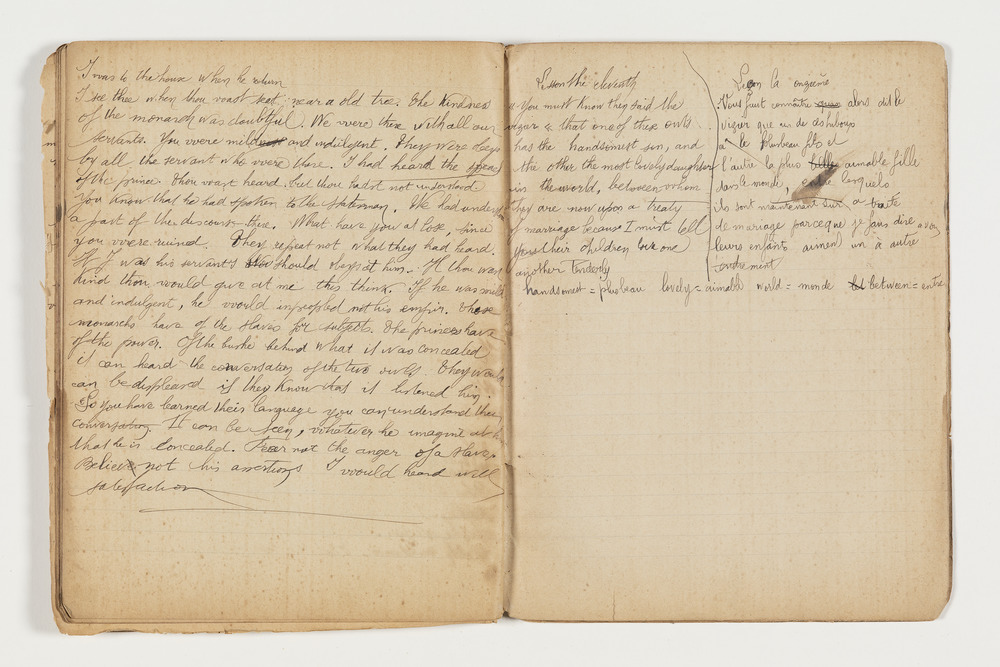 I was to the house when he return
I see thee when thou wast seat near a old tree. The kindness
of the monarch was doubtful. We were there with all our
servants. You were mild and indulgent. They were
by all the servant who were there. I had heard the
of the prince. Thou wast heard but thou hadst not understood
You know that he had spoken to the statesman. We had
a part of the discourse thise. What have you at lose, since
you were ruined. They repeat not what they had heard.
If I was his servants should obey at him. If thou was
kind thou would give at me this think. If he was mild
and indulgent, he would not his empire. Those
monarchs have of the slaves for subjects. The princes have
of the power. Of the bushe behind what it was concealed
it can heard the conversation of the two owls. They
can be displeased if they know that it listened him.
So you have learned their language you can understand their
conversation. It can be seen, whatever he imagin at
that he is concealed. Fear not the anger of a slave.
Believe not his assertions I would heard will
satisfaction
Lesson the eleventh
"You must know they said the
vizier " that one of these owls
has the handsomest son, and
the other the most lovely daughter
in the world, between whom
they are now upon a treaty
of marriage because I must tell
you their children love one
another tenderly
Leçon la onzième
Vous faut connaître alors dit le
vizier que un de
a le plusbeau fils et
l'autre la plus aimable fille
dans le monde, entre lesquels
ils sont maintenant sur a traité
de mariage parceque je fais dire a vous
leurs enfants aiment un à autre
tendrement
handsomest = plusbeau lovely = aimable world = monde between = entre